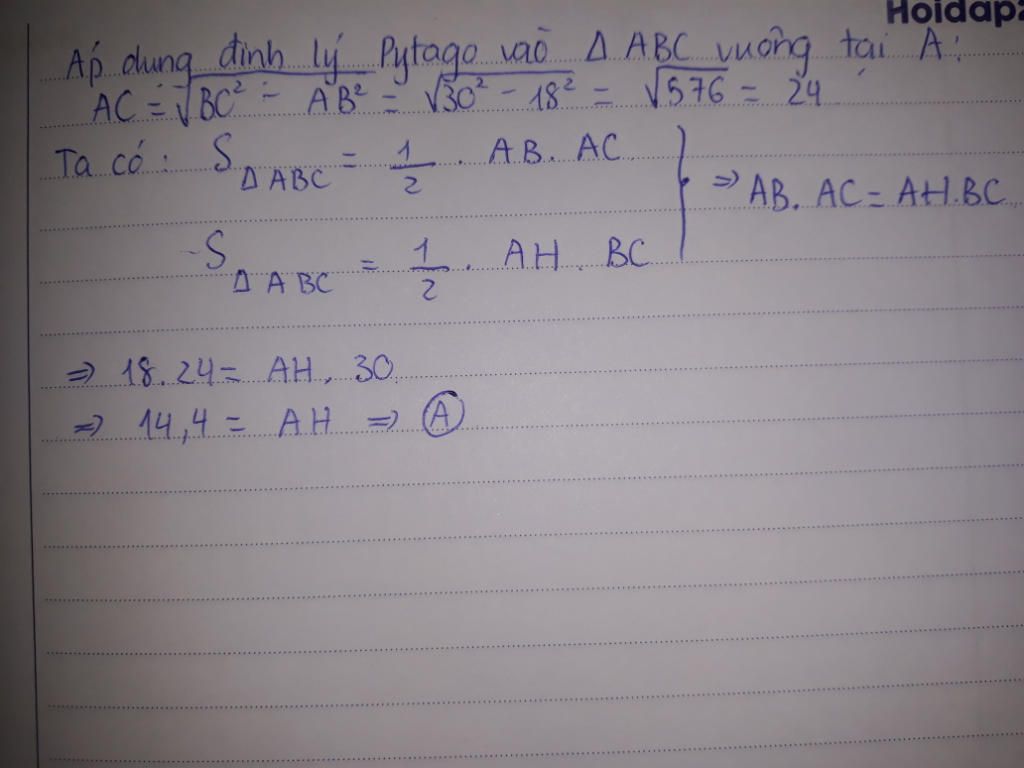 Hoidap2
Áp dụng định lý Pytago vào Δ ABC vuông tại A:
AC = √BC² - AB² = √30² - 18² = √576 = 24
Ta có: S ΔABC = 1/2 . AB. AC
⇒ AB. AC = AH.BC
S ΔABC = 1/2 . AH. BC
⇒ 18.24 = AH. 30
⇒ 14,4 = AH ⇒ A